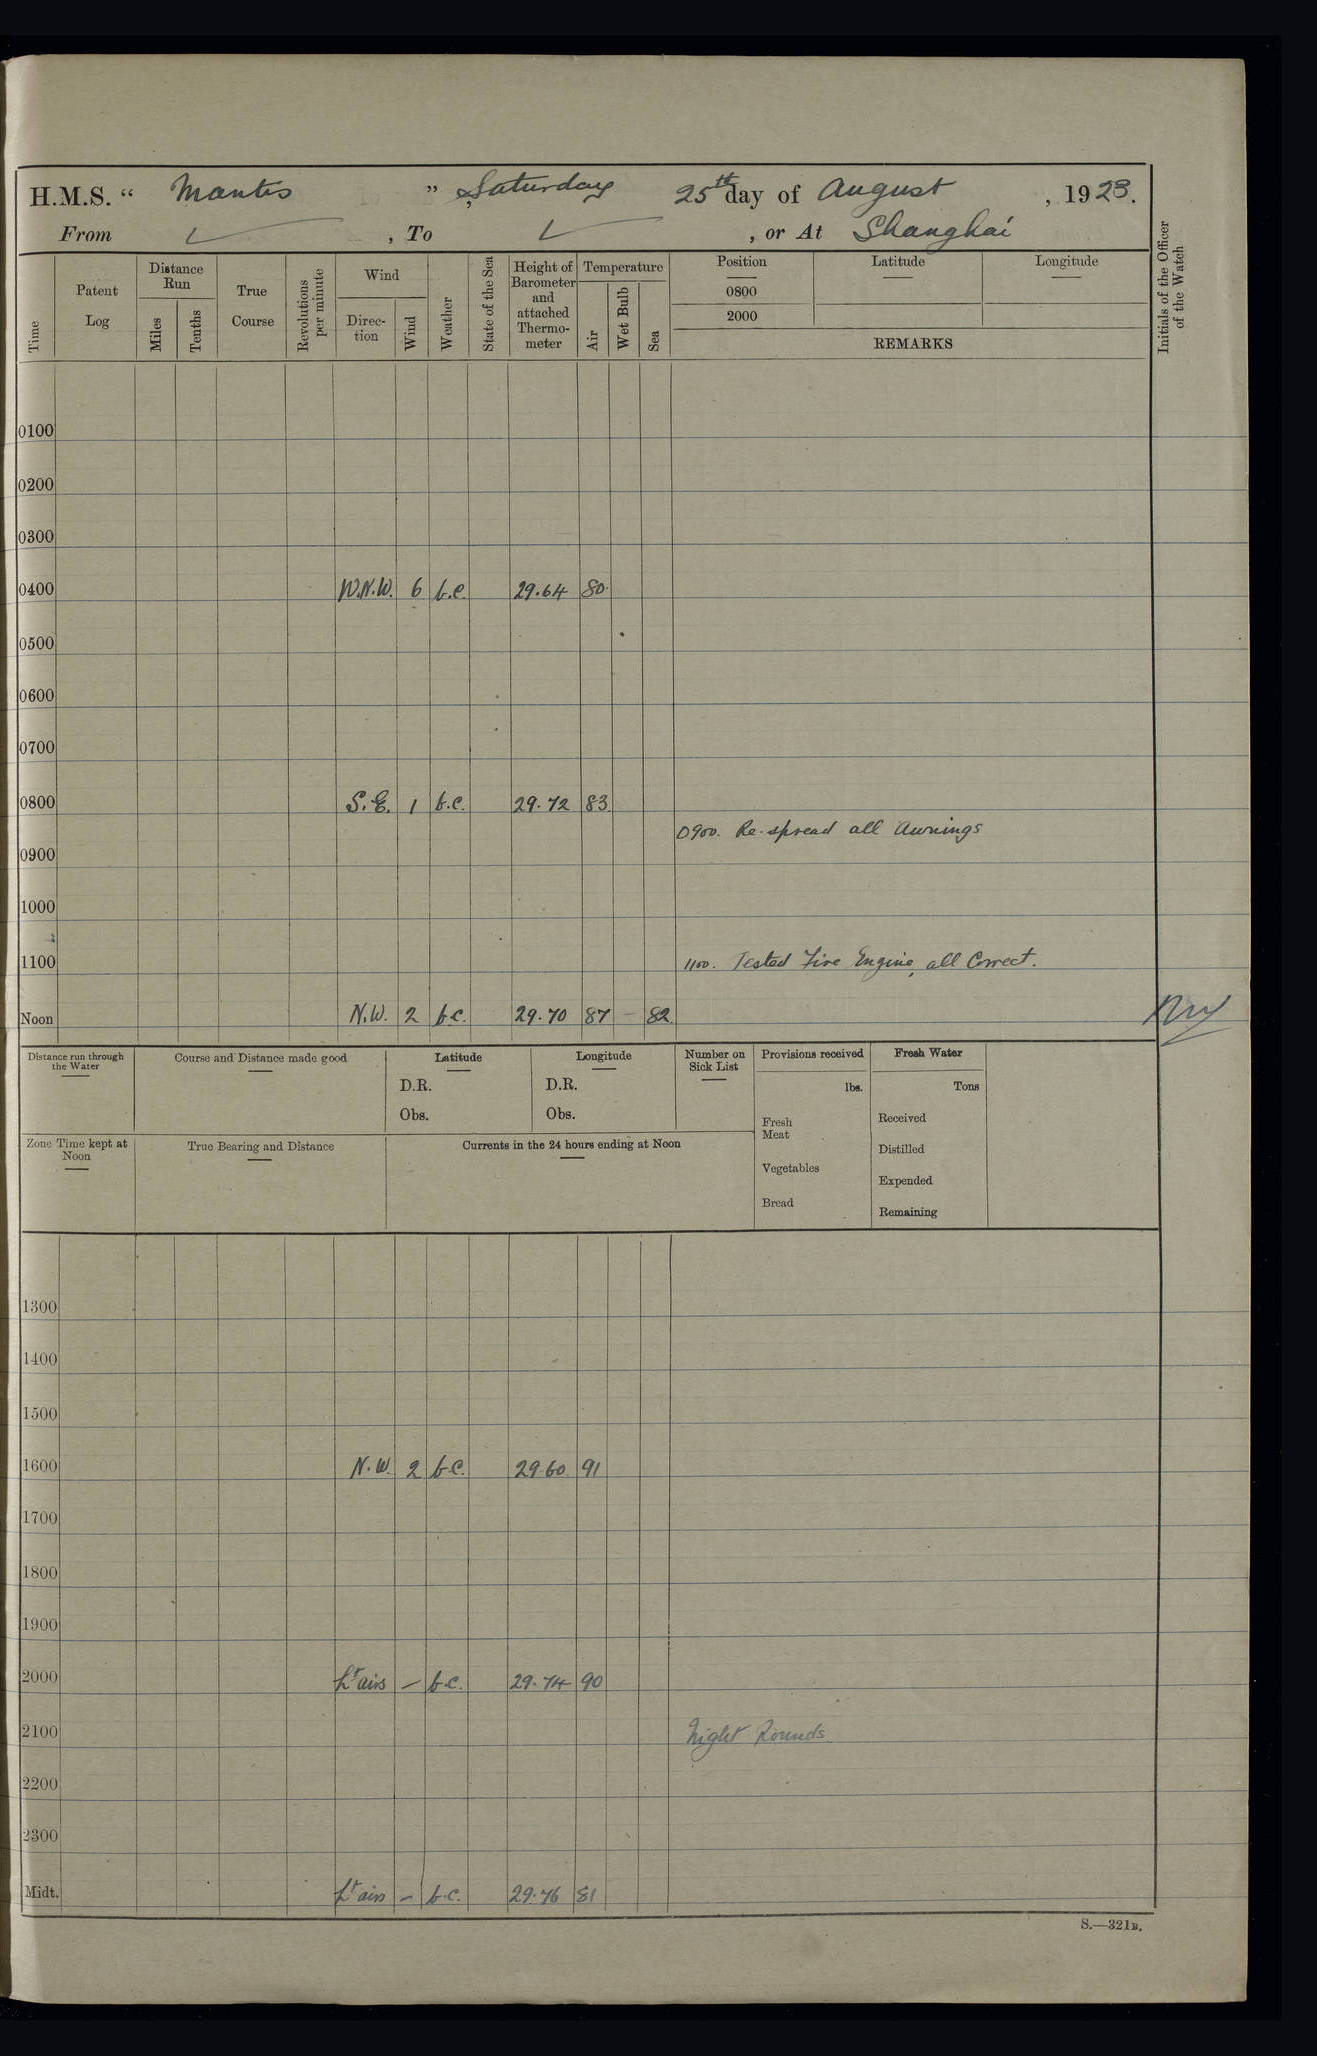 H.M.S. “ Mantis ” , Saturday 25th day of August , 1923.
From ✓ , To ✓ , or At Shanghai
Time
Patent Log
Distance Run
Miles
Tenths
True Course
Revolutions per minute
Wind
Direc-tion
Wind
Weather
State of the Sea
Height of Barometer and attached Thermo-meter
Temperature
Air
Wet Bulb
Sea
Position
Latitude
Longitude
0800
2000
REMARKS
Initials of the Officer of the Watch
0100
0200
0300
0400 W.N.W. 6 b.c. 29.64 80.
0500
0600
0700
0800 S.E. 1 b.c. 29.72 83
0900. Re-spread all Awnings
0900
1000
1100 1100. Tested Fire Engine, all Correct.
Noon N.W. 2 b.c. 29.70 87 – 82
Distance run through the Water
Course and Distance made good
Latitude
D.R.
Obs.
Longitude
D.R.
Obs.
Number on Sick List
Provisions received
lbs.
Fresh Meat
Vegetables
Bread
Fresh Water
Tons
Received
Distilled
Expended
Remaining
Zone Time kept at Noon
True Bearing and Distance
Currents in the 24 hours ending at Noon
1300
1400
1500
1600 N.W. 2 b.c. 29.60 91
1700
1800
1900
2000 Lt airs – b.c. 29.74 90
2100 Night Rounds.
2200
2300
Midt. Lt airs – b.c. 29.76 81
S.—321B.